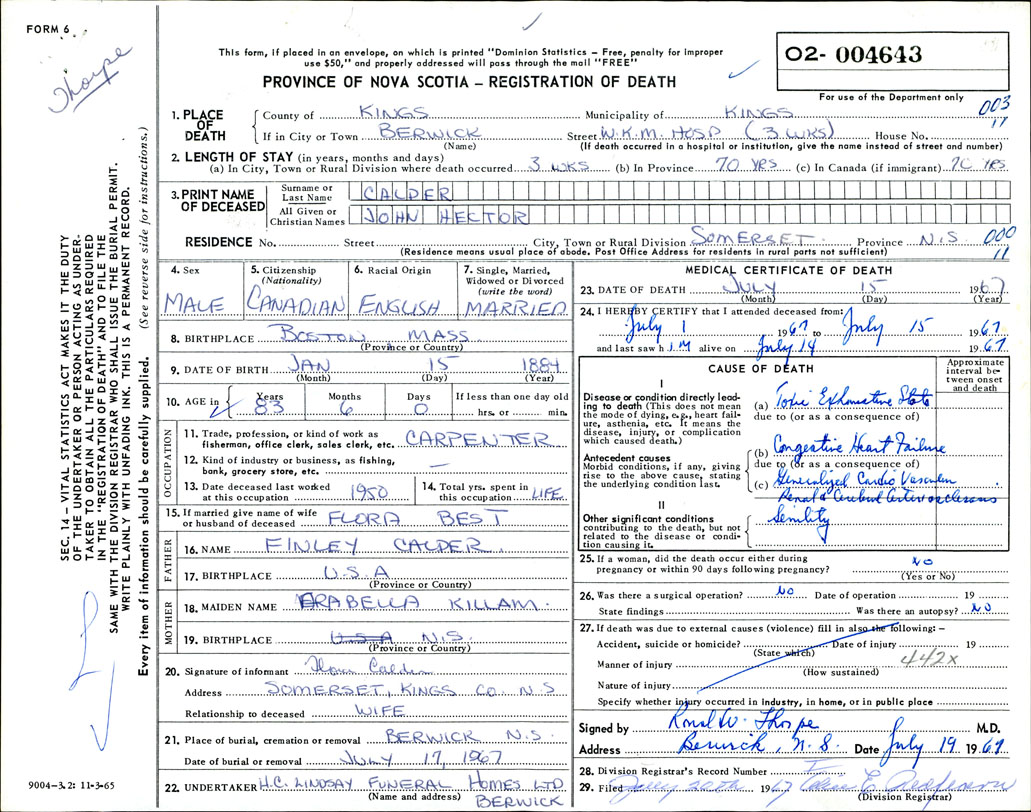 FORM 6
Thorpe
This form, if placed in an envelope, on which is printed "Dominion Statistics – Free, penalty for improper
use $50," and properly addressed will pass through the mail "FREE"
PROVINCE OF NOVA SCOTIA – REGISTRATION OF DEATH
02- 004643
For use of the Department only
003
11
SEC. 14 – VITAL STATISTICS ACT MAKES IT THE DUTY
OF THE UNDERTAKER OR PERSON ACTING AS UNDER-
TAKER TO OBTAIN ALL THE PARTICULARS REQUIRED
IN THE "REGISTRATION OF DEATH" AND TO FILE THE
SAME WITH THE DIVISION REGISTRAR WHO SHALL ISSUE THE BURIAL PERMIT.
WRITE PLAINLY WITH UNFADING INK. THIS IS A PERMANENT RECORD.
Every item of information should be carefully supplied. (See reverse side for instructions.)
1. PLACE OF DEATH
County of KINGS Municipality of KINGS
If in City or Town BERWICK Street W.K.M. HOSP (3 WKS) House No.
(Name) (If death occurred in a hospital or institution, give the name instead of street and number)
2. LENGTH OF STAY (in years, months and days)
(a) In City, Town or Rural Division where death occurred 3 WKS (b) In Province 70 YRS (c) In Canada (if immigrant) 70 YRS
3. PRINT NAME OF DECEASED
Surname or Last Name CALDER
All Given or Christian Names JOHN HECTOR
RESIDENCE No. Street City, Town or Rural Division SOMERSET Province N.S. 000
11
(Residence means usual place of abode. Post Office Address for residents in rural parts not sufficient)
4. Sex MALE
5. Citizenship (Nationality) CANADIAN
6. Racial Origin ENGLISH
7. Single, Married, Widowed or Divorced (write the word) MARRIED
8. BIRTHPLACE BOSTON MASS
(Province or Country)
9. DATE OF BIRTH JAN 15 1884
(Month) (Day) (Year)
10. AGE in Years 83 Months 6 Days 0 If less than one day old hrs. or min.
OCCUPATION
11. Trade, profession, or kind of work as
fisherman, office clerk, sales clerk, etc. CARPENTER
12. Kind of industry or business, as fishing,
bank, grocery store, etc. —
13. Date deceased last worked at this occupation 1950
14. Total yrs. spent in this occupation LIFE
15. If married give name of wife or husband of deceased FLORA BEST
FATHER
16. NAME FINLEY CALDER
17. BIRTHPLACE U.S.A
(Province or Country)
MOTHER
18. MAIDEN NAME ARABELLA KILLAM
19. BIRTHPLACE U.S.A N.S.
(Province or Country)
20. Signature of informant Flora Calder
Address SOMERSET, KINGS CO. N.S
Relationship to deceased WIFE
21. Place of burial, cremation or removal BERWICK N.S.
Date of burial or removal JULY 17, 1967
22. UNDERTAKER H.C. LINDSAY FUNERAL HOMES LTD
(Name and address) BERWICK
9004–3.2: 11-3-65
MEDICAL CERTIFICATE OF DEATH
23. DATE OF DEATH JULY 15 1967
(Month) (Day) (Year)
24. I HEREBY CERTIFY that I attended deceased from:
July 1 1967 to July 15 1967
and last saw h IM alive on July 14 1967
CAUSE OF DEATH
Approximate interval between onset and death
I
Disease or condition directly lead-
ing to death (This does not mean
the mode of dying, e.g., heart fail-
ure, asthenia, etc. It means the
disease, injury, or complication
which caused death.)
(a) Toxic Exhaustive State
due to (or as a consequence of)
Antecedent causes
Morbid conditions, if any, giving
rise to the above cause, stating
the underlying condition last.
(b) Congestive Heart Failure
due to (or as a consequence of)
(c) Generalized Cardio Vascular
Renal & Cerebral Arteriosclerosis
II
Other significant conditions
contributing to the death, but not
related to the disease or condi-
tion causing it.
Senility
25. If a woman, did the death occur either during
pregnancy or within 90 days following pregnancy? NO
(Yes or No)
26. Was there a surgical operation? NO Date of operation 19
State findings Was there an autopsy? NO
27. If death was due to external causes (violence) fill in also the following: –
Accident, suicide or homicide? Date of injury 19
(State which)
Manner of injury 442X
(How sustained)
Nature of injury
Specify whether injury occurred in industry, in home, or in public place
Signed by Ronal W. Thorpe M.D.
Address Berwick, N.S. Date July 19 1967
28. Division Registrar's Record Number
29. Filed July 20th 1967
(Division Registrar)